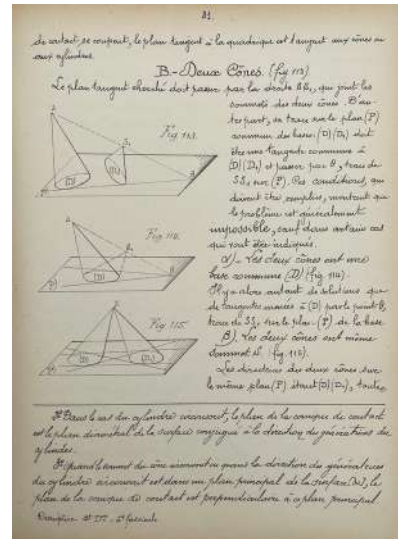 81.
de contact se coupant, le plan tangent à la quadrique est tangent aux cônes ou
aux cylindres.
B.- Deux Cônes. (fig 113)
Le plan tangent cherché doit passer par la droite SS₁, qui joint les
sommets des deux cônes. D'au-
tre part, sa trace sur le plan (P)
commun des bases (D)(D₁) doit
être une tangente commune à
(D)(D₁) et passer par θ, trace de
SS₁ sur (P). Ces conditions, qui
doivent être remplies, montrent que
le problème est généralement
impossible, sauf dans certains cas
qui vont être indiqués.
α).- Les deux cônes ont une
base commune (D) (fig 114).
Il y a alors autant de solutions que
de tangentes menées à (D) par le point θ,
trace de SS₁ sur le plan (P) de la base.
β). Les deux cônes ont même
sommet S. (fig. 115).
Les directrices des deux cônes sur
le même plan (P) étant (D)(D₁), toutes
Fig. 113.
Fig. 114.
Fig. 115.
Dans le cas du cylindre circonscrit, le plan de la conique de contact
est le plan diamétral de la surface conjugué à la direction des génératrices du
cylindre.
Quand le sommet du cône circonscrit ou quand la direction des génératrices
du cylindre circonscrit est dans un plan principal de la surface, le
plan de la conique de contact est perpendiculaire à ce plan principal